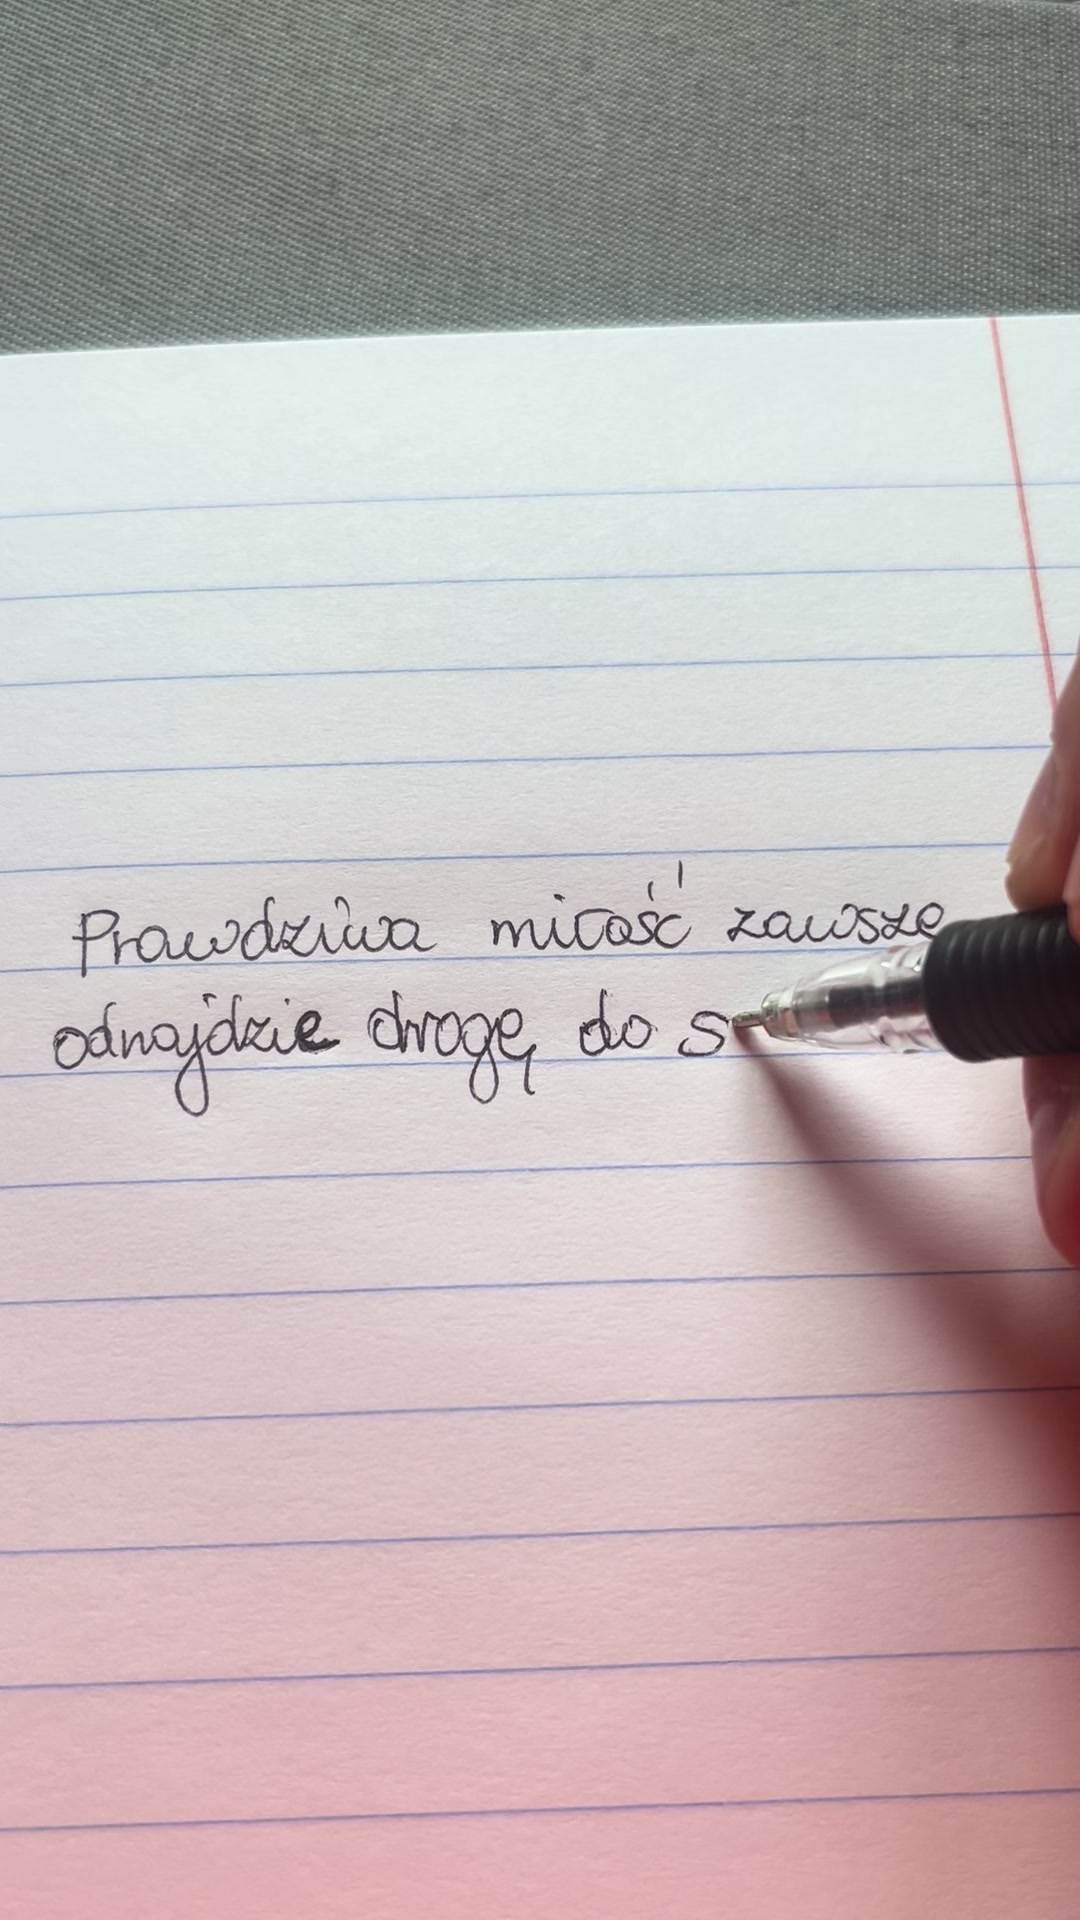 Prawdziwa miłość zawsze
odnajdzie drogę do s